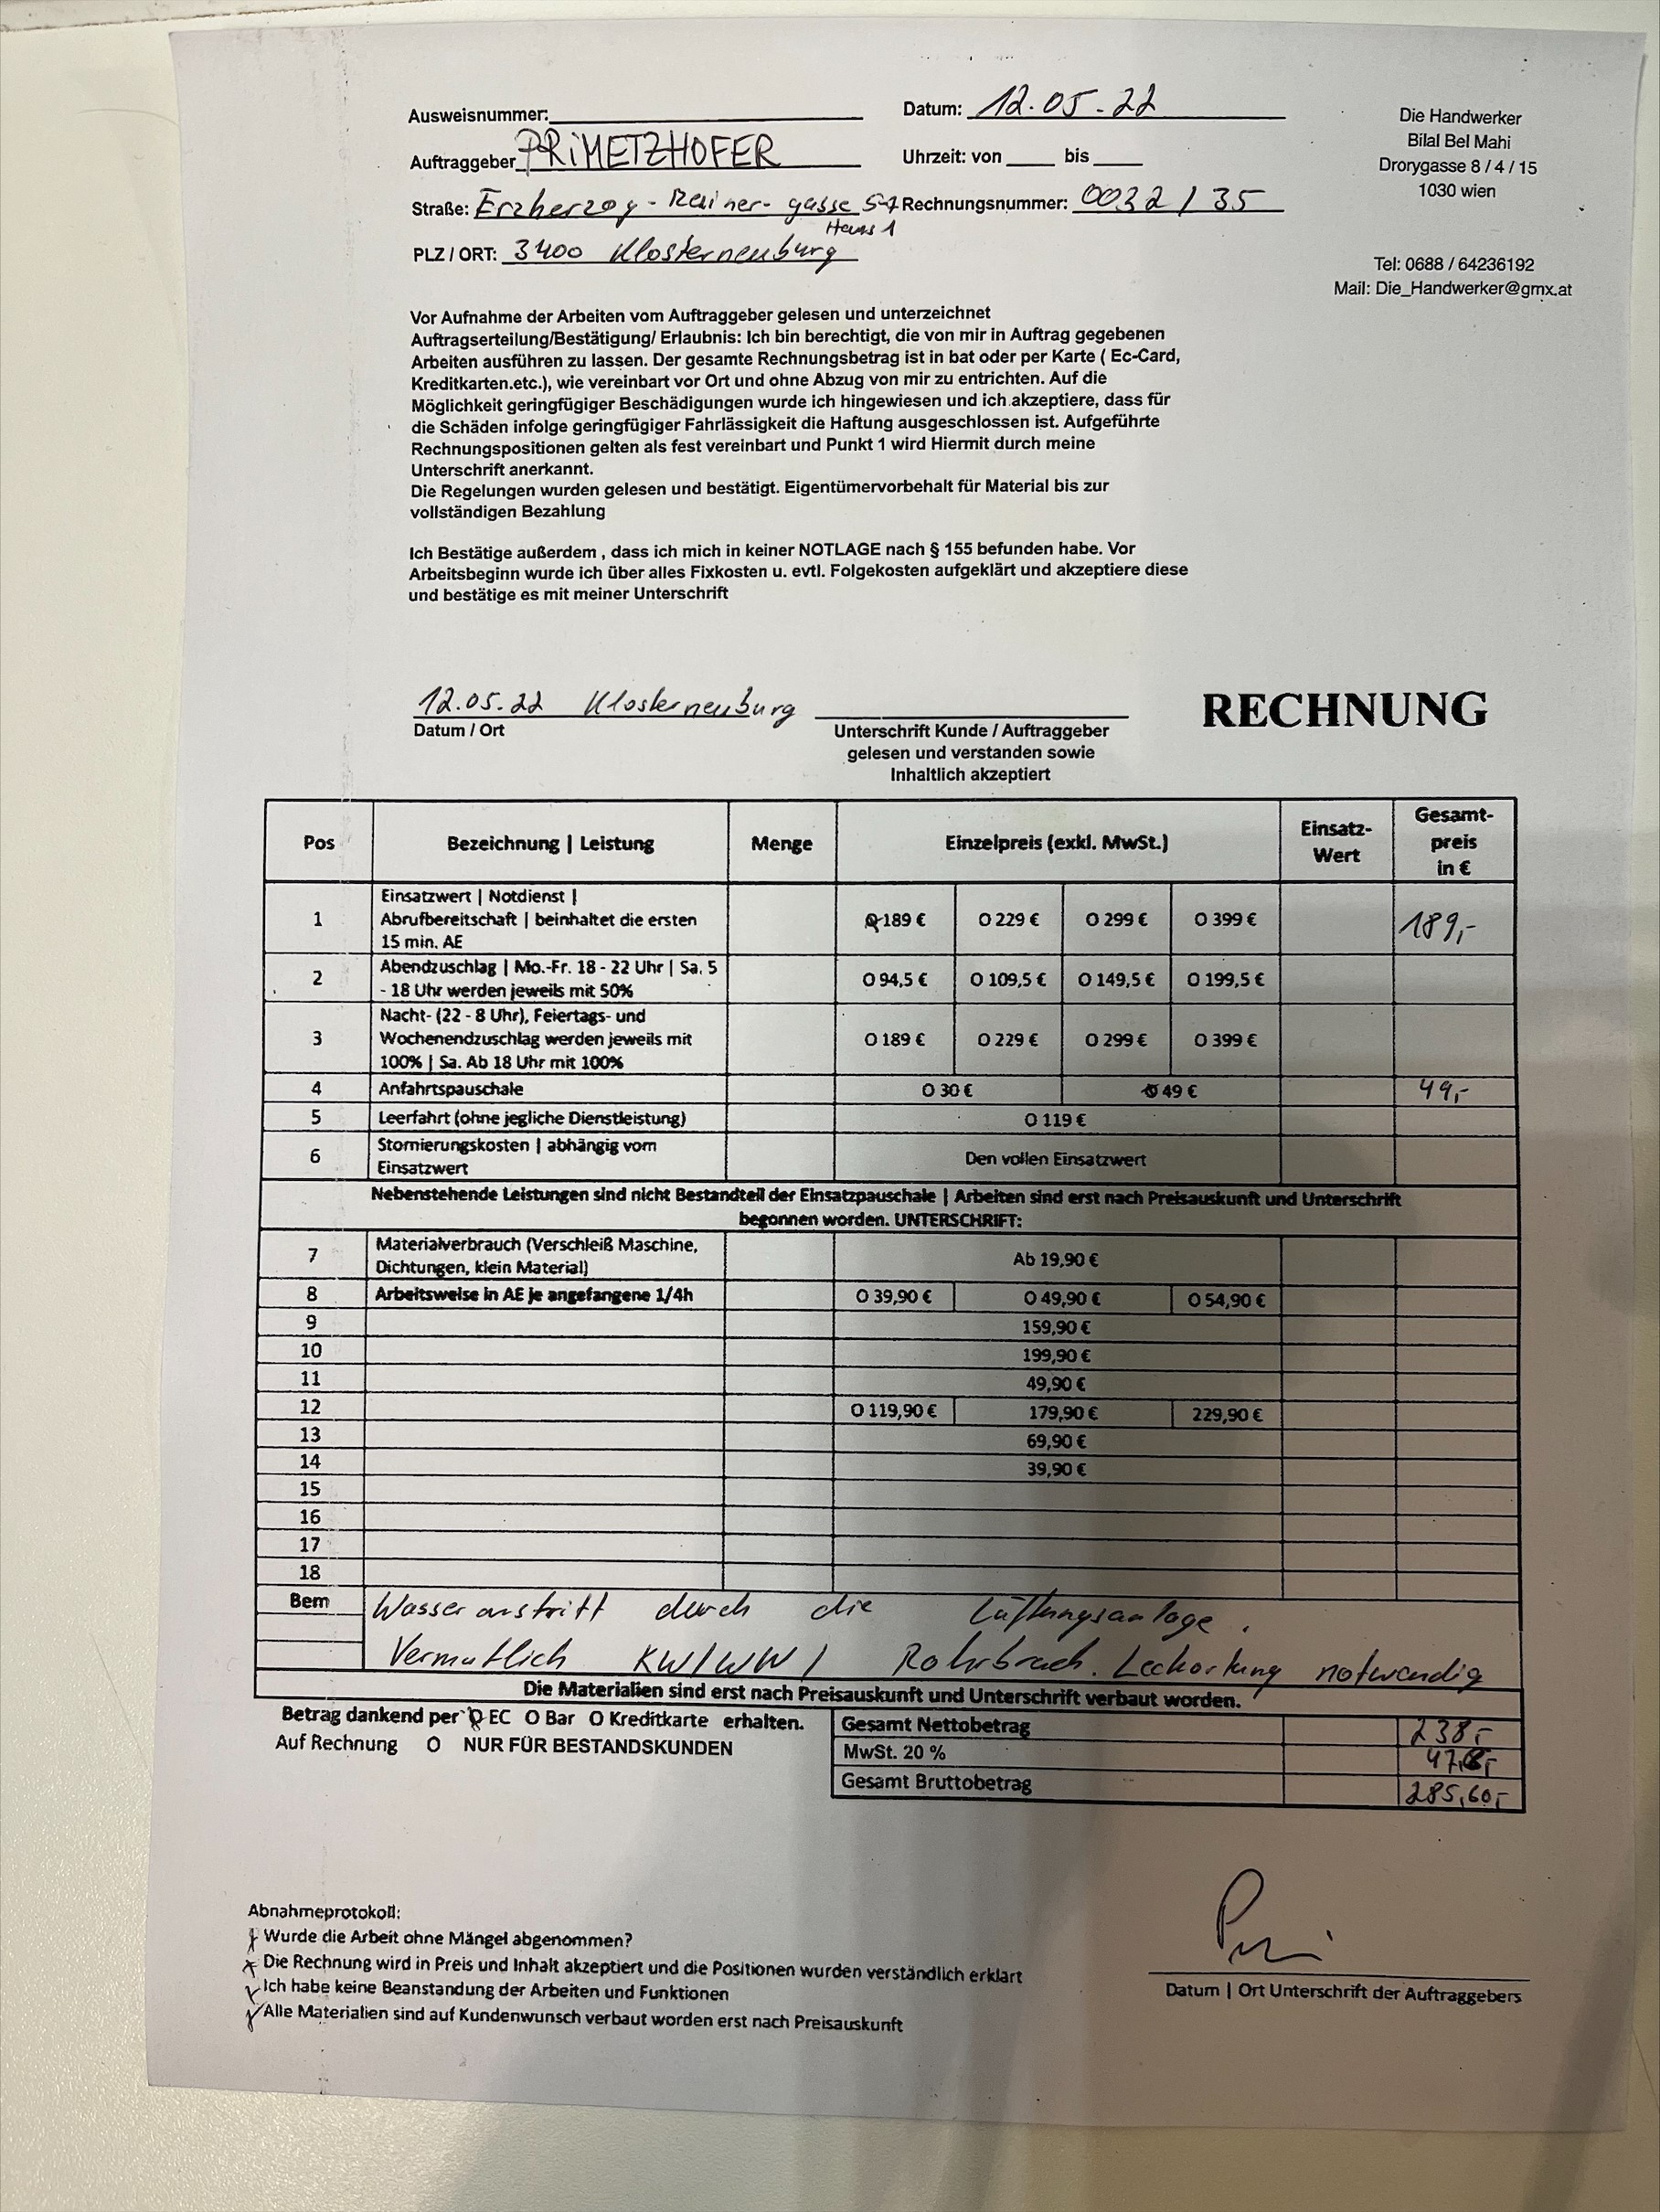 Ausweisnummer:
Datum: 12.05.22
Auftraggeber PRIMETZHOFER
Uhrzeit: von ____ bis ____
Straße: Erzherzog-Rainer-gasse 5-7
Haus 1
Rechnungsnummer: 0032 / 35
PLZ / ORT: 3400 Klosterneuburg
Die Handwerker
Bilal Bel Mahi
Drorygasse 8 / 4 / 15
1030 wien
Tel: 0688 / 64236192
Mail: Die_Handwerker@gmx.at
Vor Aufnahme der Arbeiten vom Auftraggeber gelesen und unterzeichnet
Auftragserteilung/Bestätigung/ Erlaubnis: Ich bin berechtigt, die von mir in Auftrag gegebenen
Arbeiten ausführen zu lassen. Der gesamte Rechnungsbetrag ist in bat oder per Karte ( Ec-Card,
Kreditkarten.etc.), wie vereinbart vor Ort und ohne Abzug von mir zu entrichten. Auf die
Möglichkeit geringfügiger Beschädigungen wurde ich hingewiesen und ich akzeptiere, dass für
die Schäden infolge geringfügiger Fahrlässigkeit die Haftung ausgeschlossen ist. Aufgeführte
Rechnungspositionen gelten als fest vereinbart und Punkt 1 wird Hiermit durch meine
Unterschrift anerkannt.
Die Regelungen wurden gelesen und bestätigt. Eigentümervorbehalt für Material bis zur
vollständigen Bezahlung
Ich Bestätige außerdem , dass ich mich in keiner NOTLAGE nach § 155 befunden habe. Vor
Arbeitsbeginn wurde ich über alles Fixkosten u. evtl. Folgekosten aufgeklärt und akzeptiere diese
und bestätige es mit meiner Unterschrift
12.05.22 Klosterneuburg
Datum / Ort
Unterschrift Kunde / Auftraggeber
gelesen und verstanden sowie
Inhaltlich akzeptiert
RECHNUNG
Pos Bezeichnung | Leistung Menge Einzelpreis (exkl. MwSt.) Einsatz-Wert Gesamt-preis in €
1 Einsatzwert | Notdienst |
Abrufbereitschaft | beinhaltet die ersten
15 min. AE
O 189 € O 229 € O 299 € O 399 € 189,-
2 Abendzuschlag | Mo.-Fr. 18 - 22 Uhr | Sa. 5
- 18 Uhr werden jeweils mit 50%
O 94,5 € O 109,5 € O 149,5 € O 199,5 €
3 Nacht- (22 - 8 Uhr), Feiertags- und
Wochenendzuschlag werden jeweils mit
100% | Sa. Ab 18 Uhr mit 100%
O 189 € O 229 € O 299 € O 399 €
4 Anfahrtspauschale O 30 € O 49 € 49,-
5 Leerfahrt (ohne jegliche Dienstleistung) O 119 €
6 Stornierungskosten | abhängig vom
Einsatzwert
Den vollen Einsatzwert
Nebenstehende Leistungen sind nicht Bestandteil der Einsatzpauschale | Arbeiten sind erst nach Preisauskunft und Unterschrift
begonnen worden. UNTERSCHRIFT:
7 Materialverbrauch (Verschleiß Maschine,
Dichtungen, klein Material)
Ab 19,90 €
8 Arbeitsweise in AE je angefangene 1/4h O 39,90 € O 49,90 € O 54,90 €
9 159,90 €
10 199,90 €
11 49,90 €
12 O 119,90 € 179,90 € 229,90 €
13 69,90 €
14 39,90 €
15
16
17
18
Bem Wasseraustritt durch die Lüftungsanlage.
Vermutlich KW/WW/ Rohrbruch. Leckortung notwendig
Die Materialien sind erst nach Preisauskunft und Unterschrift verbaut worden.
Betrag dankend per O EC O Bar O Kreditkarte erhalten.
Auf Rechnung O NUR FÜR BESTANDSKUNDEN
Gesamt Nettobetrag 238,-
MwSt. 20 % 47,6,-
Gesamt Bruttobetrag 285,60,-
Abnahmeprotokoll:
Wurde die Arbeit ohne Mängel abgenommen?
Die Rechnung wird in Preis und Inhalt akzeptiert und die Positionen wurden verständlich erklärt
Ich habe keine Beanstandung der Arbeiten und Funktionen
Alle Materialien sind auf Kundenwunsch verbaut worden erst nach Preisauskunft
Datum | Ort Unterschrift der Auftraggebers